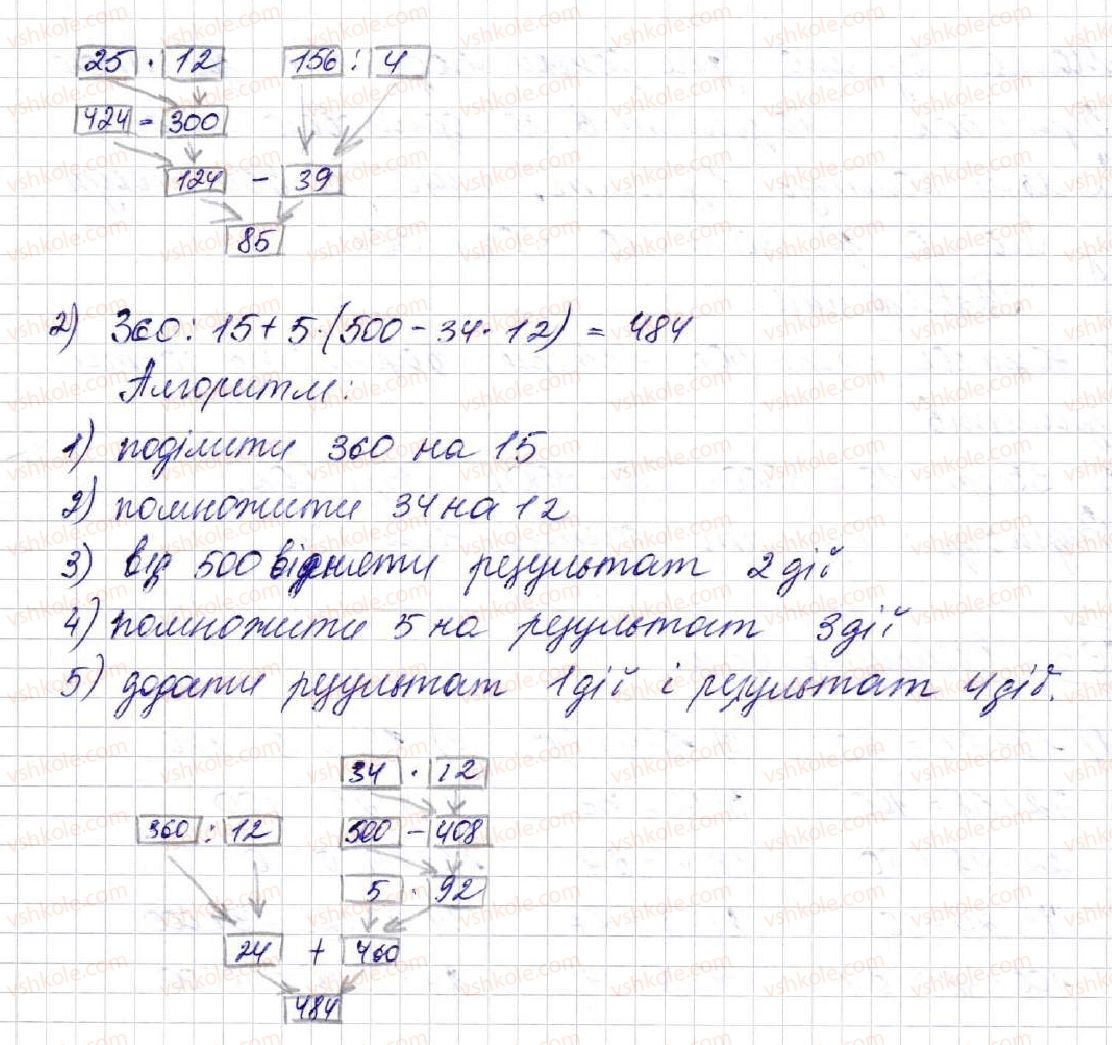 25 · 12 156 : 4
424 - 300
124 - 39
85
2) 360 : 15 + 5 · (500 - 34 · 12) = 484
Алгоритм:
1) поділити 360 на 15
2) помножити 34 на 12
3) від 500 відняти результат 2 дії
4) помножити 5 на результат 3 дії
5) додати результат 1 дії і результат 4 дії.
34 · 12
360 : 12 500 - 408
5 · 92
24 + 460
484
vshkole.com